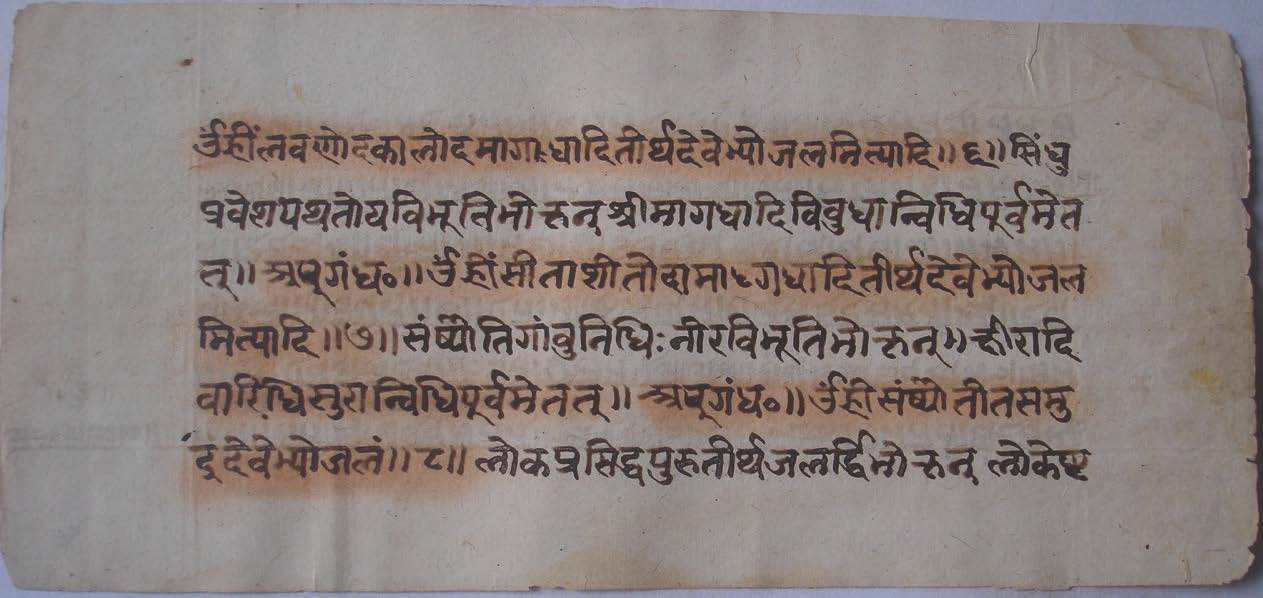 ॐ ह्रीं लवणोदकालोदमागाधादितीर्थदेवेभ्यो जलमित्यादि॥ ६॥ सिंधु
प्रवेशपथतोयविभूतिभोक्तॄन् श्रीमागधादिविबुधान्विधिपूर्वमेत
त्॥ अपूगंध०॥ ॐ ह्रीं सीताशीतोदामागधादितीर्थदेवेभ्यो जल
मित्यादि॥ ७॥ नीरविभूतिभोक्तॄन्॥ क्षीरादि
वारिधिसुरान्विधिपूर्वमेतत्॥ अपूगंध०॥ ॐ ह्रीं समु
द्रदेवेभ्यो जलं॥ ८॥ लोकप्रसिद्धपुरुतीर्थजलर्द्धिभोक्तॄन्